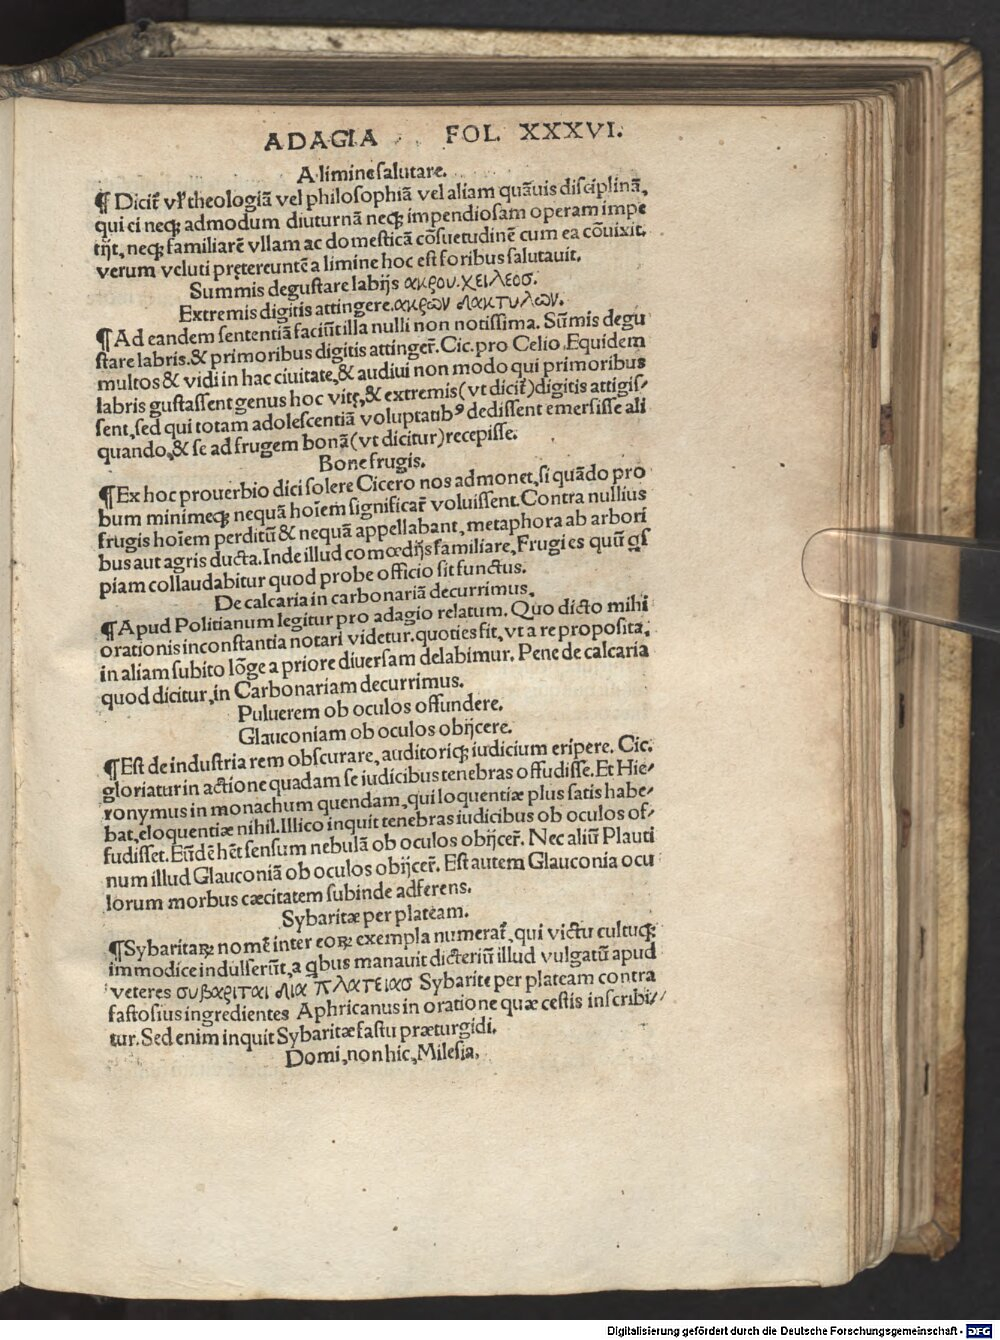 ADAGIA FOL. XXXVI.
A limine salutare.
¶ Dicit᷑ vł theologiã vel philosophiã vel aliam quãuis disciplinã,
qui ci neqꝫ admodum diuturnã neqꝫ impendiosam operam impe
tijt, neqꝫ familiarẽ vllam ac domesticã cõsuetudinẽ cum ea cõuixit.
verum veluti prętereuntẽ a limine hoc est foribus salutauit.
Summis degustare labijs ακρου.χειλεοσ.
Extremis digitis attingere.ακρων δακτυλων.
¶Ad eandem sententiã faciũt illa nulli non notissima. Sũmis degu
stare labris.& primoribus digitis attinger᷑. Cic. pro Celio. Equidem
multos & vidi in hac ciuitate,& audiui non modo qui primoribus
labris gustassent genus hoc vitę,& extremis (vt dicit᷑) digitis attigis⸗
sent, sed qui totam adolescentiã voluptatibꝰ dedissent emersisse ali
quando,& se ad frugem bonã (vt dicitur) recepisse.
Bone frugis.
¶Ex hoc prouerbio dici solere Cicero nos admonet, si quãdo pro
bum minimeqꝫ nequã hoĩem significar᷑ voluissent. Contra nullius
frugis hoĩem perditũ & nequã appellabant, metaphora ab arbori
bus aut agris ducta. Inde illud comœdijs familiare, Frugi es quũ q̃s
piam collaudabitur quod probe officio sit functus.
De calcaria in carbonariã decurrimus.
¶Apud Politianum legitur pro adagio relatum. Quo dicto mihi
orationis inconstantia notari videtur. quoties fit, vt a re proposita,
in aliam subito lõge a priore diuersam delabimur. Pene de calcaria
quod dicitur, in Carbonariam decurrimus.
Puluerem ob oculos offundere.
Glauconiam ob oculos obijcere.
¶Est de industria rem obscurare, auditoriqꝫ iudicium eripere. Cic.
gloriatur in actione quadam se iudicibus tenebras offudisse. Et Hie⸗
ronymus in monachum quendam, qui loquentiæ plus satis habe⸗
bat, eloquentiæ nihil. Illico inquit tenebras iudicibus ob oculos of⸗
fudisset. Eũdẽ hẽt sensum nebulã ob oculos obijcer᷑. Nec aliũ Plauti
num illud Glauconiã ob oculos obijcer᷑. Est autem Glauconia ocu
lorum morbus cæcitatem subinde adferens.
Sybaritæ per plateam.
¶Sybaritaꝝ nomẽ inter eoꝝ exempla numerat᷑, qui victu cultuqꝫ
immodice indulserũt, a q̃bus manauit dicteriũ illud vulgatũ apud
veteres συβαριται δια πλατειασ Sybarite per plateam contra
fastosius ingredientes Aphricanus in oratione quæ cestis inscribi⸗
tur. Sed enim inquit Sybaritæ fastu præturgidi.
Domi, non hic, Milesia.
Digitalisierung gefördert durch die Deutsche Forschungsgemeinschaft - DFG